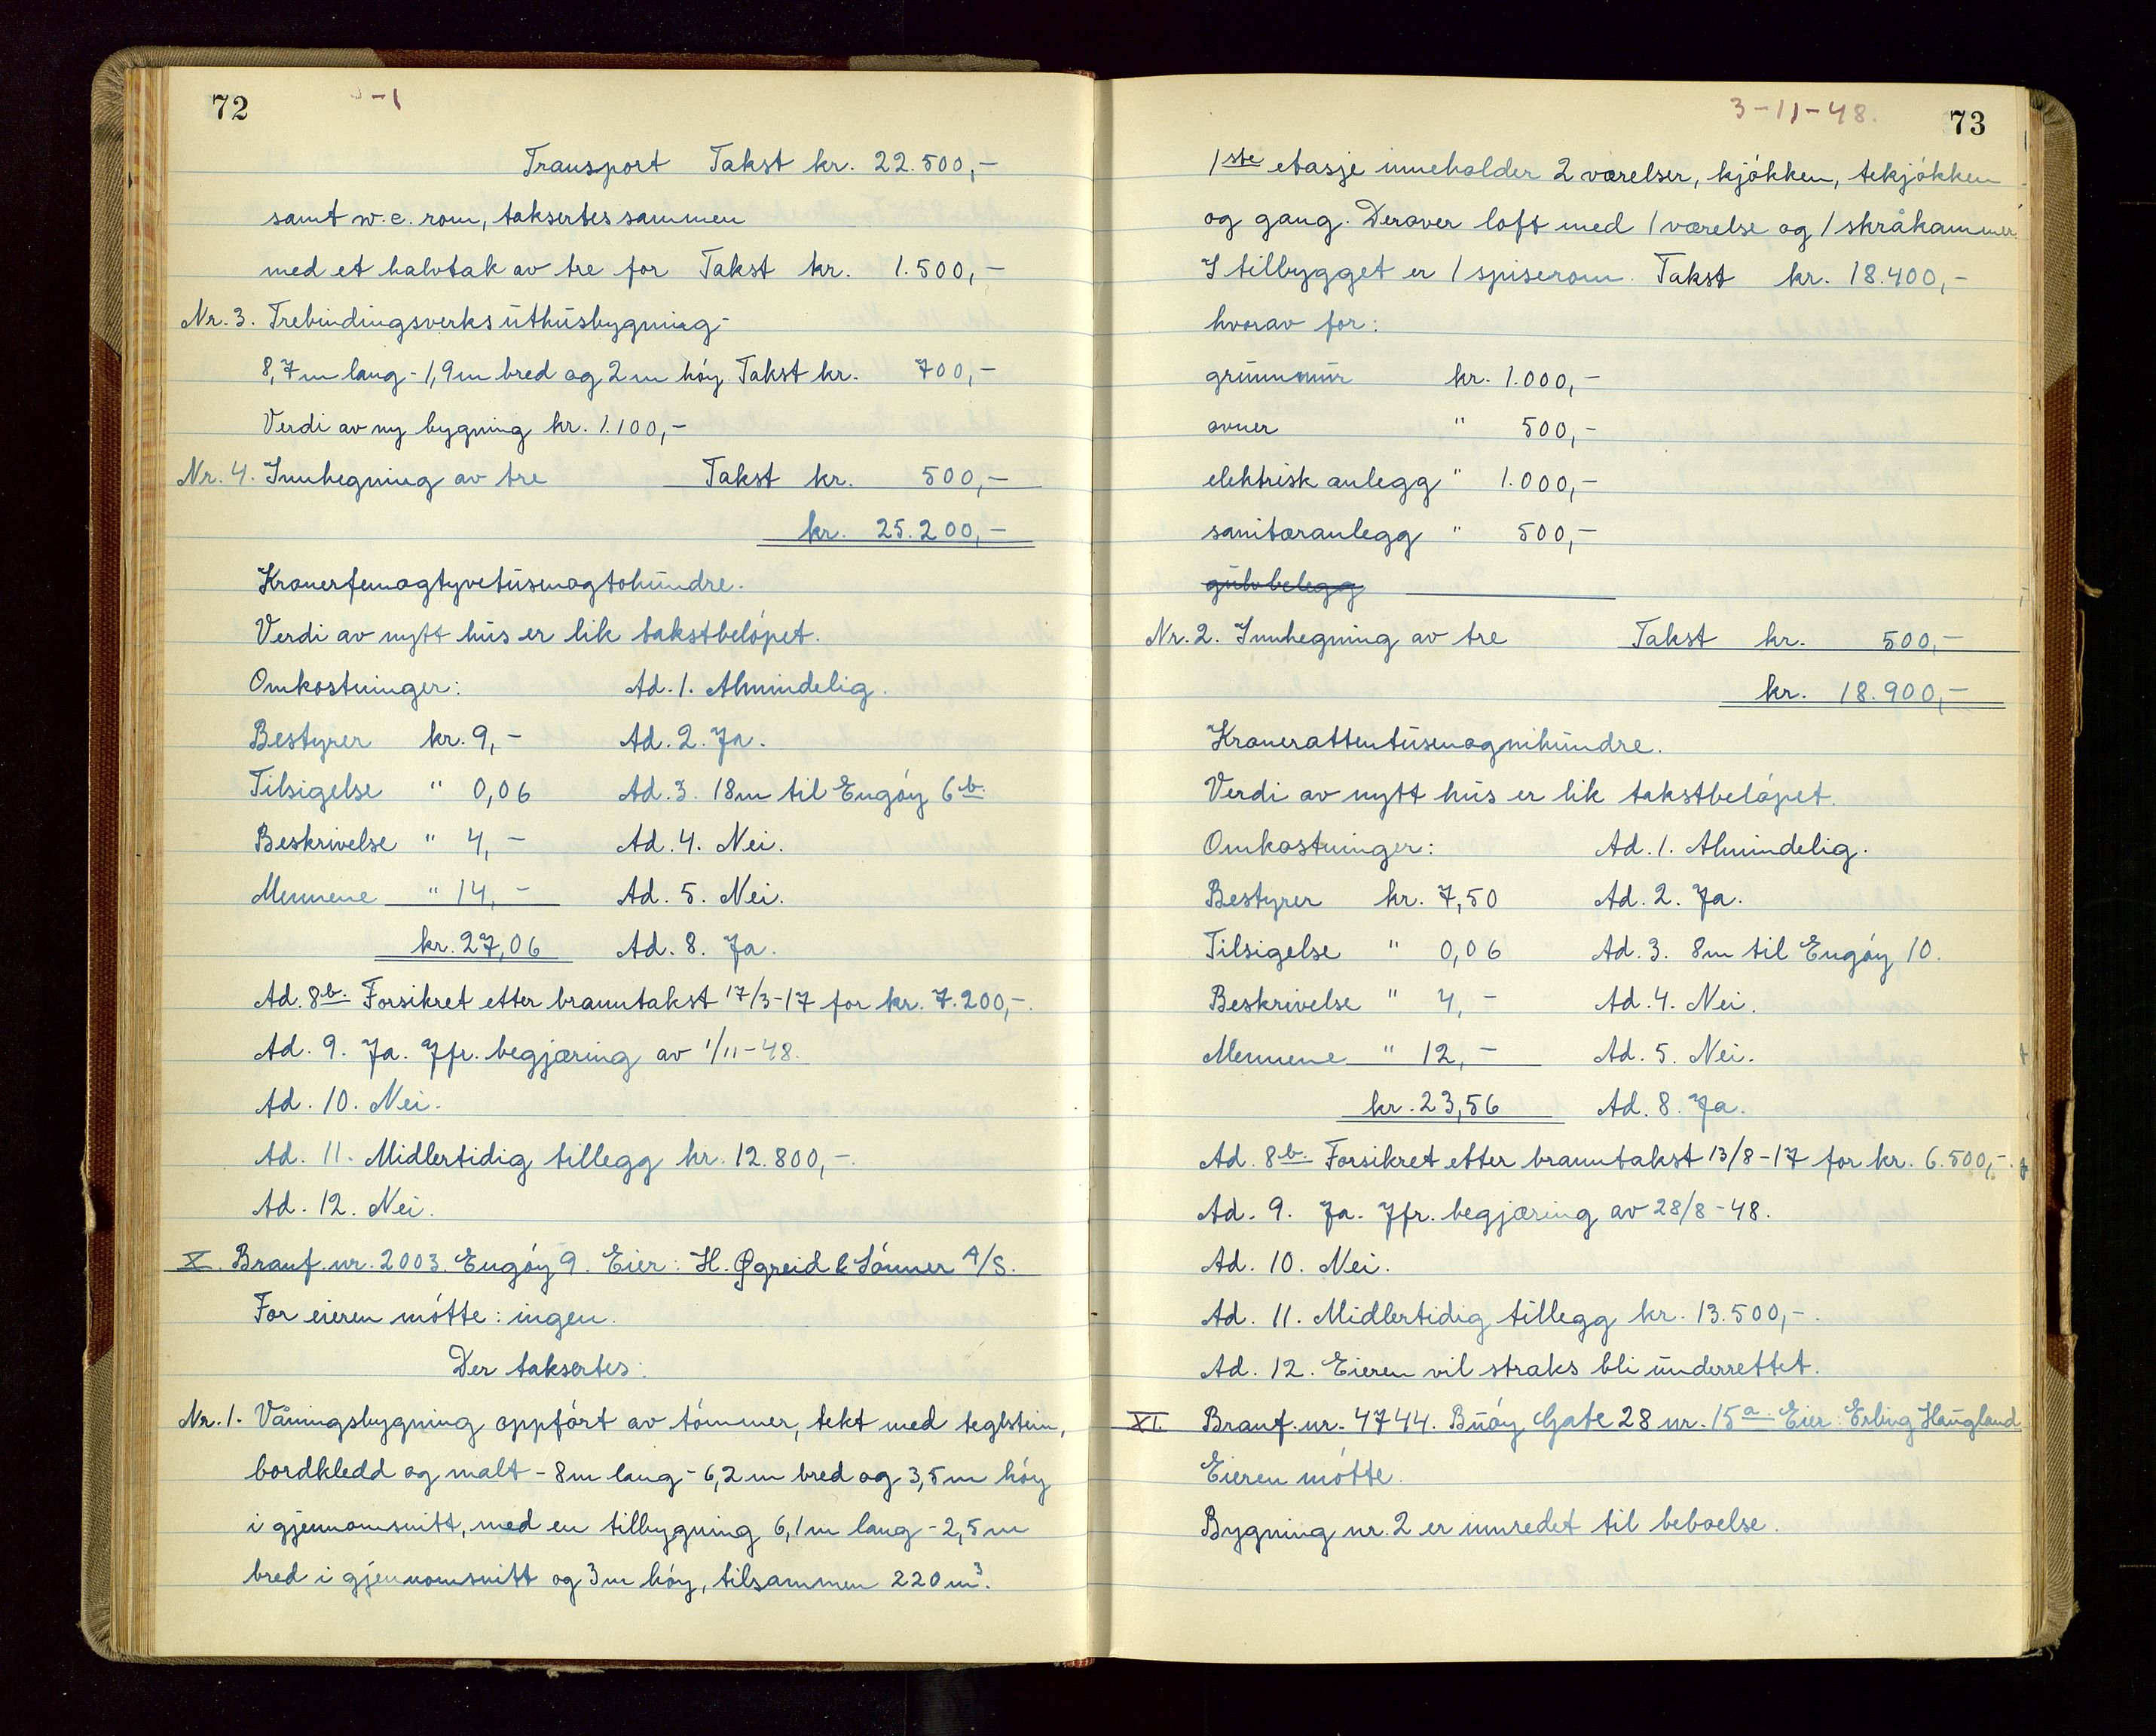 72
-1
Transport Takst kr. 22.500,-
samt w.c. rom, taksertes sammen
med et halvtak av tre for Takst kr. 1.500,-
Nr. 3. Trebindingsverks uthusbygning-
8,7m lang - 1,9m bred og 2m høy Takst kr. 700,-
Verdi av ny bygning kr. 1.100,-
Nr. 4. Innhegning av tre Takst kr. 500,-
kr. 25.200,-
Kronerfemogtyvetusenogtohundre.
Verdi av nytt hus er lik takstbeløpet.
Omkostninger: Ad. 1. Almindelig.
Bestyrer kr. 9,- Ad. 2. Ja.
Tilsigelse " 0,06 Ad. 3. 18m til Engøy 6b.
Beskrivelse " 4,- Ad. 4. Nei.
Mennene " 14,- Ad. 5. Nei.
kr. 27,06 Ad. 8. Ja.
Ad. 8b. Forsikret etter branntakst 17/3-17 for kr. 7.200,-.
Ad. 9. Ja. Jfr. begjæring av 1/11-48.
Ad. 10. Nei.
Ad. 11. Midlertidig tillegg kr. 12.800,-.
Ad. 12. Nei.
X. Branf. nr. 2003. Engøy 9. Eier: H. Øgreid & Sønner A/S.
For eieren møtte: ingen.
Der taksertes:
Nr. 1. Våningsbygning oppført av tømmer, tekt med teglstein,
bordkledd og malt - 8m lang - 6,2m bred og 3,5m høy
i gjennomsnitt, med en tilbygning 6,1m lang - 2,5m
bred i gjennomsnitt og 3m høy, tilsammen 220m³.
3-11-48.
73
1ste etasje inneholder 2 værelser, kjøkken, tekjøkken
og gang. Derover loft med 1 værelse og 1 skråkammer.
I tilbygget er 1 spiserom. Takst kr. 18.400,-
hvorav for:
grunnmur kr. 1.000,-
ovner " 500,-
elektrisk anlegg " 1.000,-
sanitæranlegg " 500,-
gulvbelegg
Nr. 2. Innhegning av tre Takst kr. 500,-
kr. 18.900,-
Kroneratttentusenognihundre.
Verdi av nytt hus er lik takstbeløpet.
Omkostninger: Ad. 1. Almindelig.
Bestyrer kr. 7,50 Ad. 2. Ja.
Tilsigelse " 0,06 Ad. 3. 8m til Engøy 10.
Beskrivelse " 4,- Ad. 4. Nei.
Mennene " 12,- Ad. 5. Nei.
kr. 23,56 Ad. 8. Ja.
Ad. 8b. Forsikret etter branntakst 13/8-17 for kr. 6.500,-.
Ad. 9. Ja. Jfr. begjæring av 28/8-48.
Ad. 10. Nei.
Ad. 11. Midlertidig tillegg kr. 13.500,-.
Ad. 12. Eieren vil straks bli underrettet.
XI. Branf. nr. 4744. Buøy Gate 28 nr. 15a. Eier: Erling Haugland
Eieren møtte.
Bygning nr. 2 er innredet til beboelse.